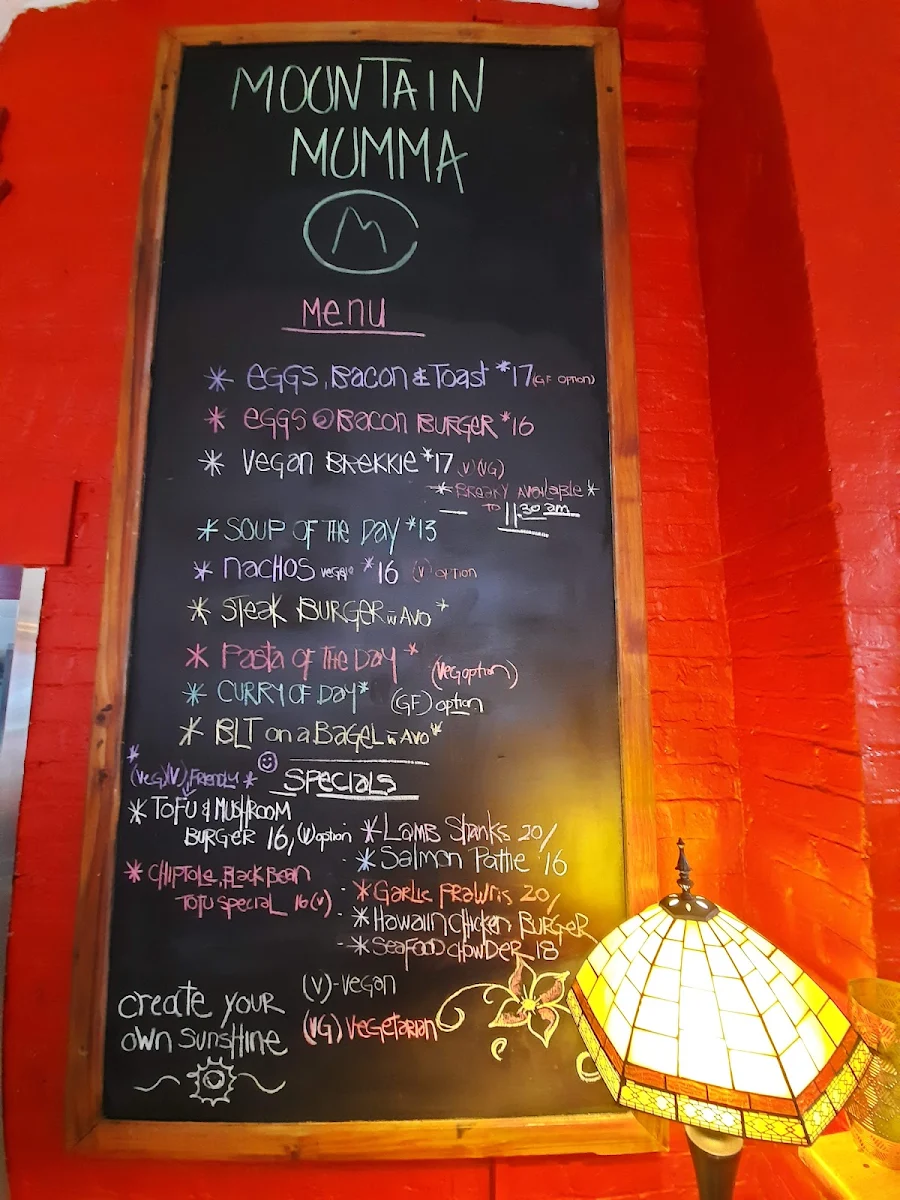 MOUNTAIN
MUMMA
M
Menu
* EGGS, Bacon & Toast *17 (GF OPTION)
* EGGS @ Bacon BURGER *16
* Vegan BREKKIE *17 (V) (VG)
* BREAKY AVAILABLE *
TO 11.30 am
* SOUP OF THE DAY *13
* nachos veggie *16 (V) OPTION
* STeaK BURGER w AVO *
* Pasta OF THE DAY * (Veg option)
* CURRY OF DAY * (GF) option
* BLT on a BAGEL w AVO *
*
(Veg)(V) FRIENDLY * SPECIALS
* TOFU & MUSHROOM
BURGER 16, (V) option
* CHIPTOLE, BLACK Bean
TOFU SPECIAL 16 (V)
* LAMB SHANKS 20/
* Salmon Pattie 16
* GARLIC PRAWNS 20/
* HawaiIn CHICKEN BURGER
* SEAFOOD CHOWDER 18
(V) - Vegan
(VG) VEGETARIAN
CREATE YOUR
OWN SUNSHINE